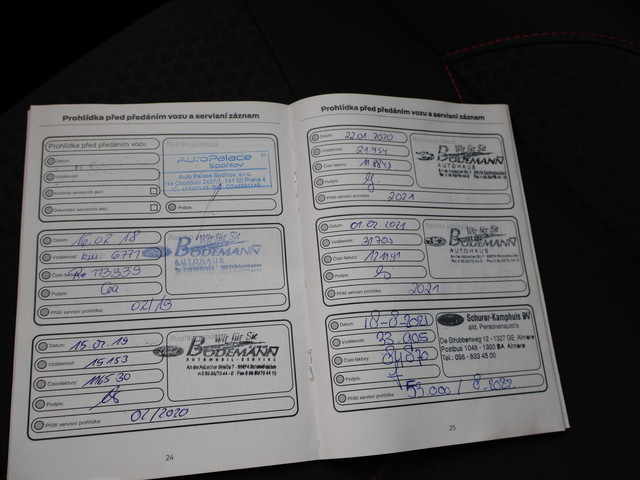 Prohlídka před předáním vozu a servisní záznam
Prohlídka před předáním vozu
Datum:
Vzdálenost:
Kontrola servisních akcí:
Dokončení servisních akcí:
Razítko prodejce
AUTO PALACE
Spořilov
Auto Palace Spořilov, s.r.o.
Podpis:
Datum: 16.02.18
Vzdálenost: km: 6771
Číslo faktury: 113339
Podpis:
Příští servisní prohlídka: 02/19
Wir für Sie
BODEMANN
AUTOHAUS
Datum: 15.02.19
Vzdálenost: 15153
Číslo faktury: 116530
Podpis:
Příští servisní prohlídka: 02/2020
Wir für Sie
BODEMANN
AUTOMOBIL-SERVICE
24
Prohlídka před předáním vozu a servisní záznam
Datum: 22.01.2020
Vzdálenost: 21454
Číslo faktury: 118843
Podpis:
Příští servisní prohlídka: 2021
Wir für Sie
BODEMANN
AUTOHAUS
Datum: 01.02.2021
Vzdálenost: 31703
Číslo faktury:
Podpis:
Příští servisní prohlídka: 2021
Wir für Sie
BODEMANN
AUTOHAUS
Datum: 18-8-2021
Vzdálenost: 33.905
Číslo faktury:
Podpis:
Příští servisní prohlídka: 53.000 / 8-2022
Schurer-Kamphuis BV
afd. Personenauto's
De Strubbenweg 12 - 1327 GE Almere
Postbus 1048 - 1300 BA Almere
Tel.: 036 - 533 45 00
25